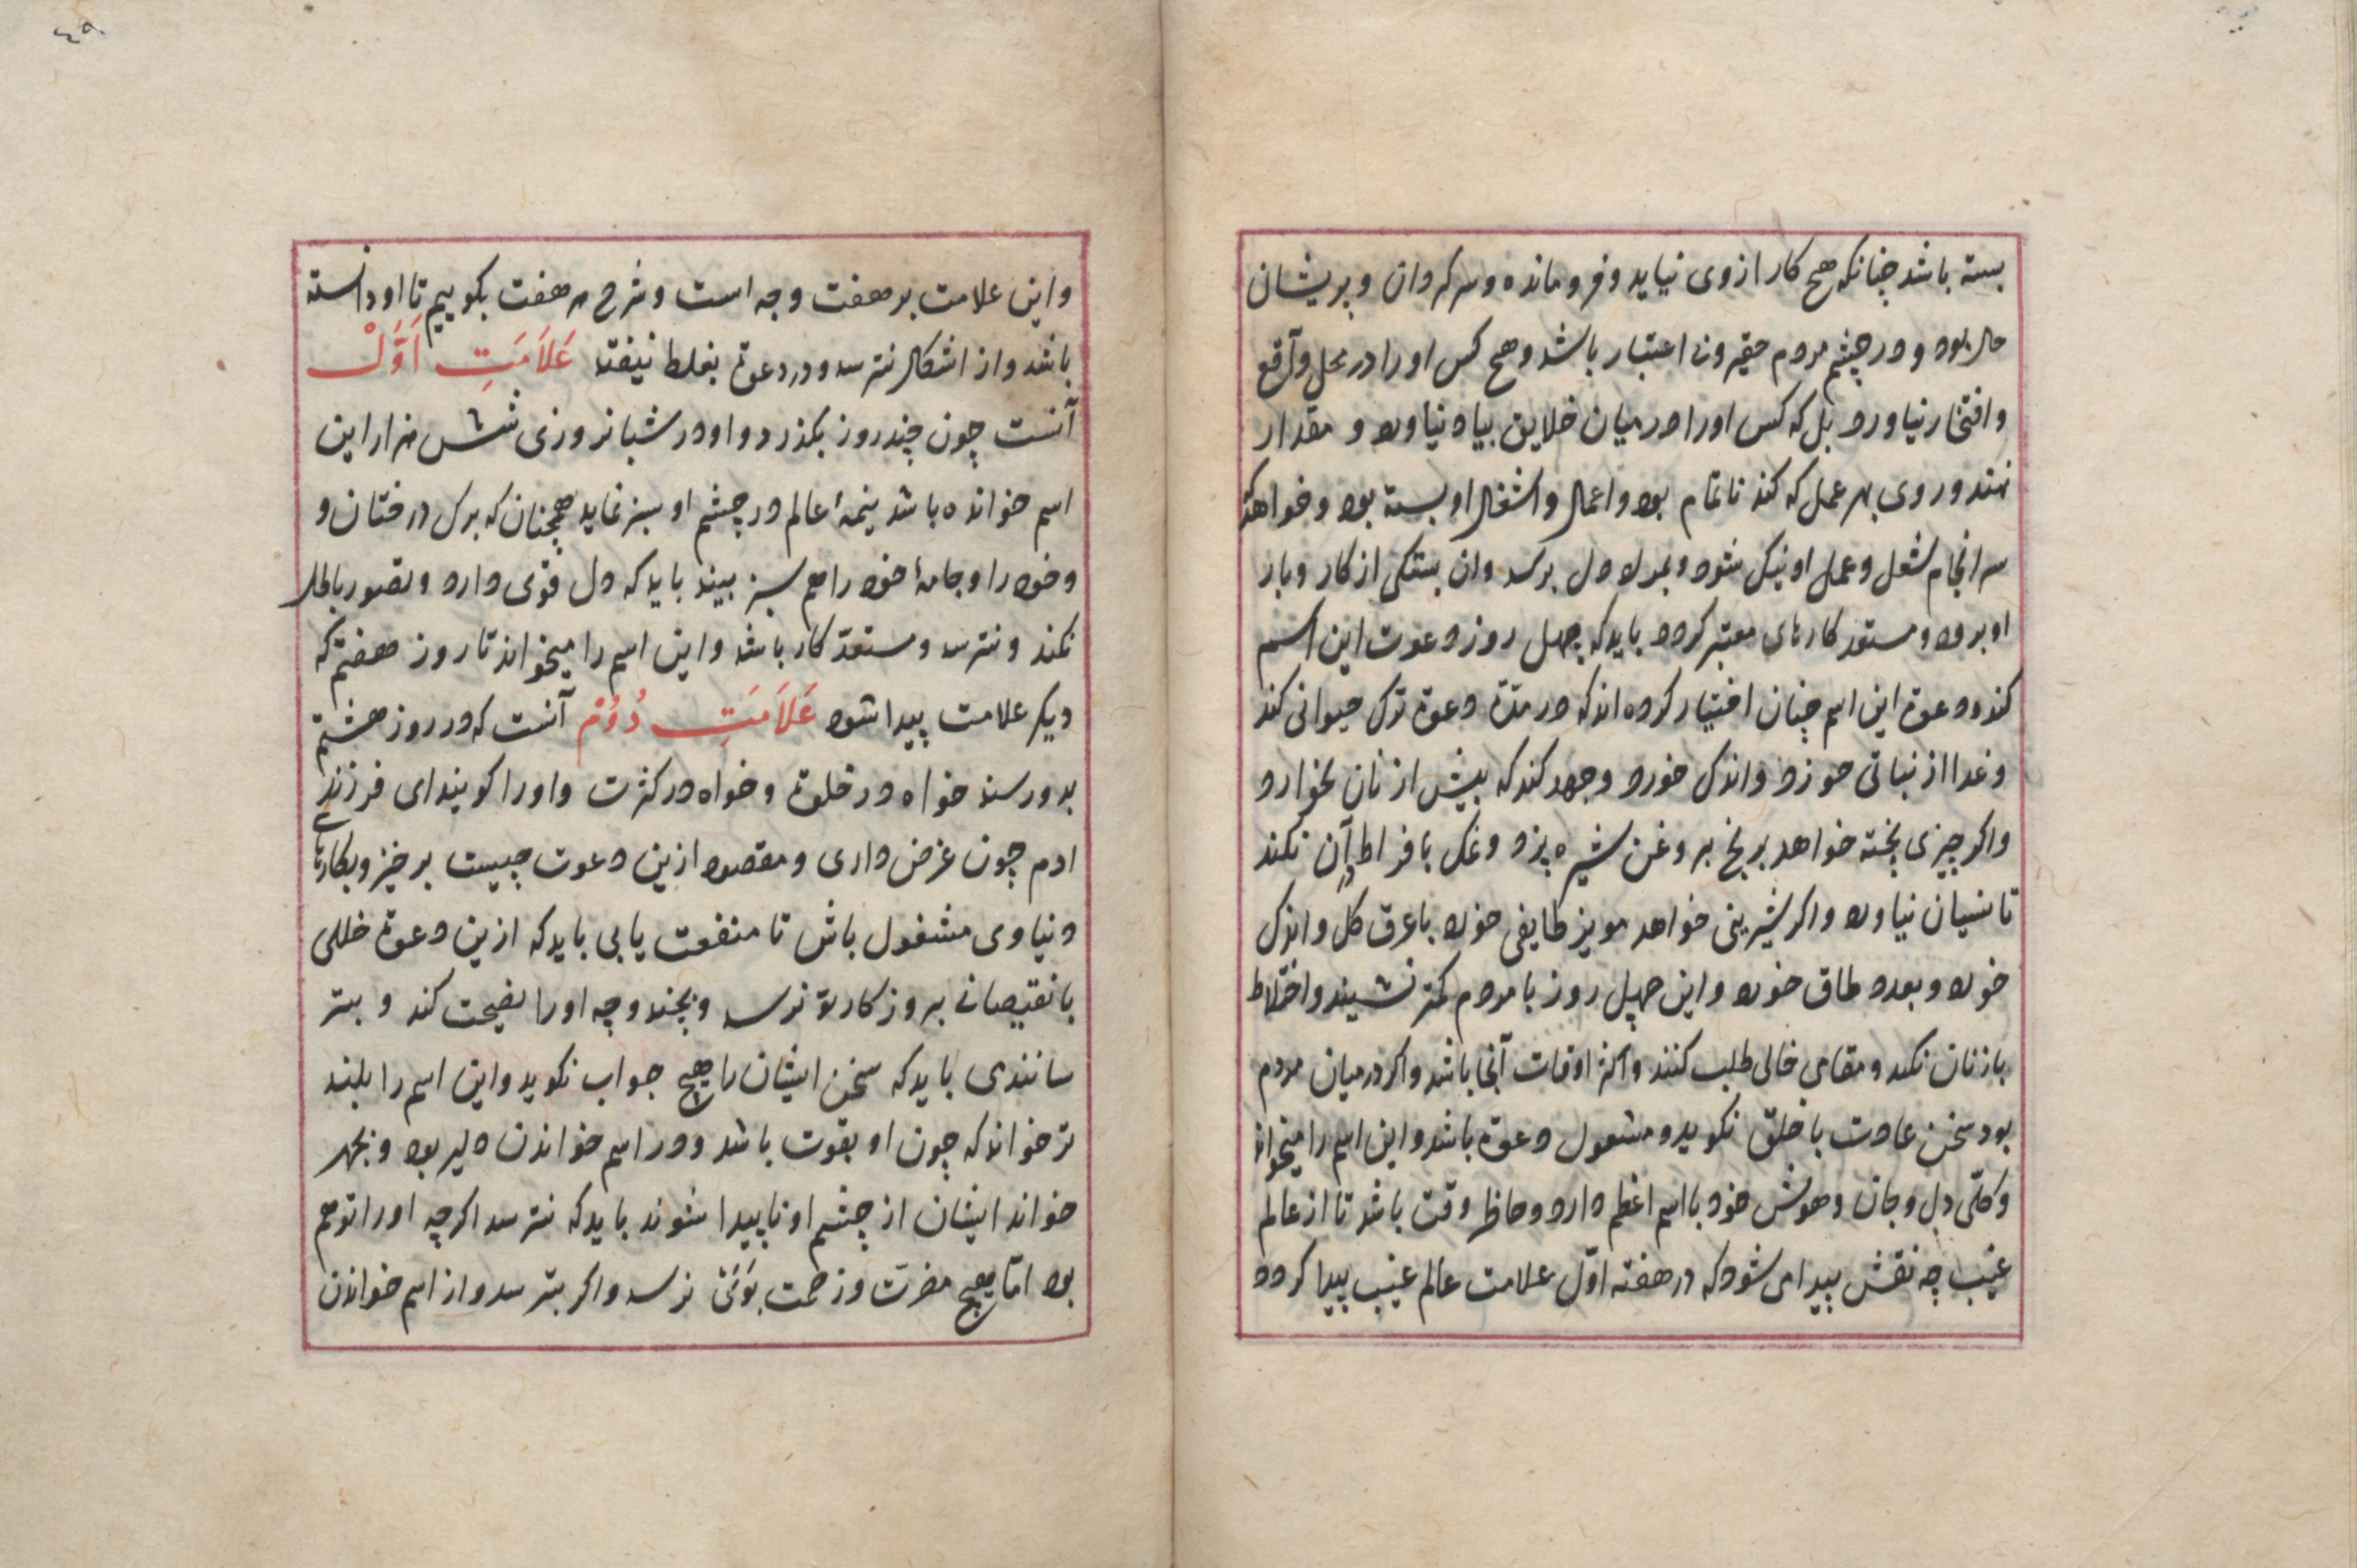 بسته باشد چنانکه هیچ کار از وی نیاید و فرو مانده و سرکردان و پریشان
حال بود و در چشم مردم حقیر و نا اعتبار باشد و هیچ کس او را در محل و آقع
و افتخار نیاورد بل که کس او را در میان خلایق بیاد نیاورد و مقدار
ننهد و روی بهر عمل که کند ناتمام بود و اعمال و اشغال او بسته بود و خواهد که
سرانجام شغل و عمل او نیک شود و بمراد دل برسد و ان بستکی از کار و بار
او برود و مستعد کارهای معتبر کردد باید که چهل روز دعوت این اسم
کند و دعوة این اسم چنان اختیار کرده اند که در مدّة دعوة ترک حیوانی کند
و غدا از نباتی خورد و اندک خورد و جهد کند که بیش از نان نخوارد
و اکر چیزی پخته خواهد برنج بروغن شیره پزد و نمک بافراط در آن نکند
تا نسیان نیاورد و اکر شیرینی خواهد مویز طایفی خورد با عرق کل و اندک
خورد و بعدد طاق خورد و این چهل روز با مردم کمتر نشیند و اختلاط
با زنان نکند و مقامی خالی طلب کنند و اکثر اوقات آنجا باشد و اکر در میان مردم
بود سخن عادت با خلق نکوید و مشغول دعوة باشد و این اسم را میخواند
و کلّی دل و جان و هوش خود با اسم اعظم دارد و حاظر وقت باشد تا از عالم
غیب چه نقش پیدا می شود که در هفته اوّل علامت عالم غیب پیدا کردد
٤٩
و این علامت بر هفت وجه است و شرح هر هفت بکوییم تا او دانسته
باشد و از اشکال نترسد و در دعوة بغلط نیفتد عَلَامَتِ اَوَّلْ
آنست چون چند روز بکذرد و او در شبانروزی شش هزار این
اسم خوانده باشد نیمهٔ عالم در چشم او سبز نماید همچنان که برک درختان و
و خود را و جامهٔ خود را هم سبز بیند باید که دل قوی دارد و تصور باطل
نکند و نترسد و مستعدّ کار باشد و این اسم را میخواند تا روز هفتم که
دیکر علامت پیدا شود عَلَامَتِ دُوُم آنست که در روز هشتم
بدو رسند خواه در خلوة و خواه در کثرت و او را کویند ای فرزند
ادم چون غرض داری و مقصود ازین دعوت چیست برخیز و بکارهای
دنیاوی مشغول باش تا منفعت یابی باید که ازین دعوة خللی
یا نقیصانی بروزکار تو نرسد و بچند وجه او را نصیحت کند و بتر
سانندی باید که سخن ایشان را هیچ جواب نکوید و این اسم را بلند
تر خواند که چون او بقوت باشد و در اسم خواندن دلیر بود و بجهر
خواند ایشان از چشم او ناپیدا شوند باید که نترسد اکرچه او را توهم
بود امّا هیچ مضرّت و زحمت بَوَیْ نرسد و اکر بترسد و از اسم خواندن